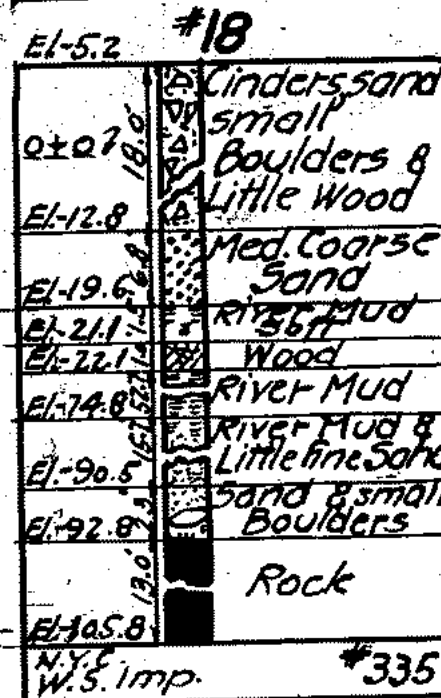 #18
El-5.2
Cinders, sand
small
Boulders &
Little Wood
0±0?
18.0'
El-12.8
Med. Coarse
Sand
6.8
El-19.6
River Mud
Soft
El-21.1
Wood
El-22.1
River Mud
El-74.8
River Mud &
Little fine Sand
15.7
El-90.5
Sand & small
Boulders
2.3
El-92.8
Rock
13.0'
El-105.8
N.Y.C.
W.S. Imp.
#335